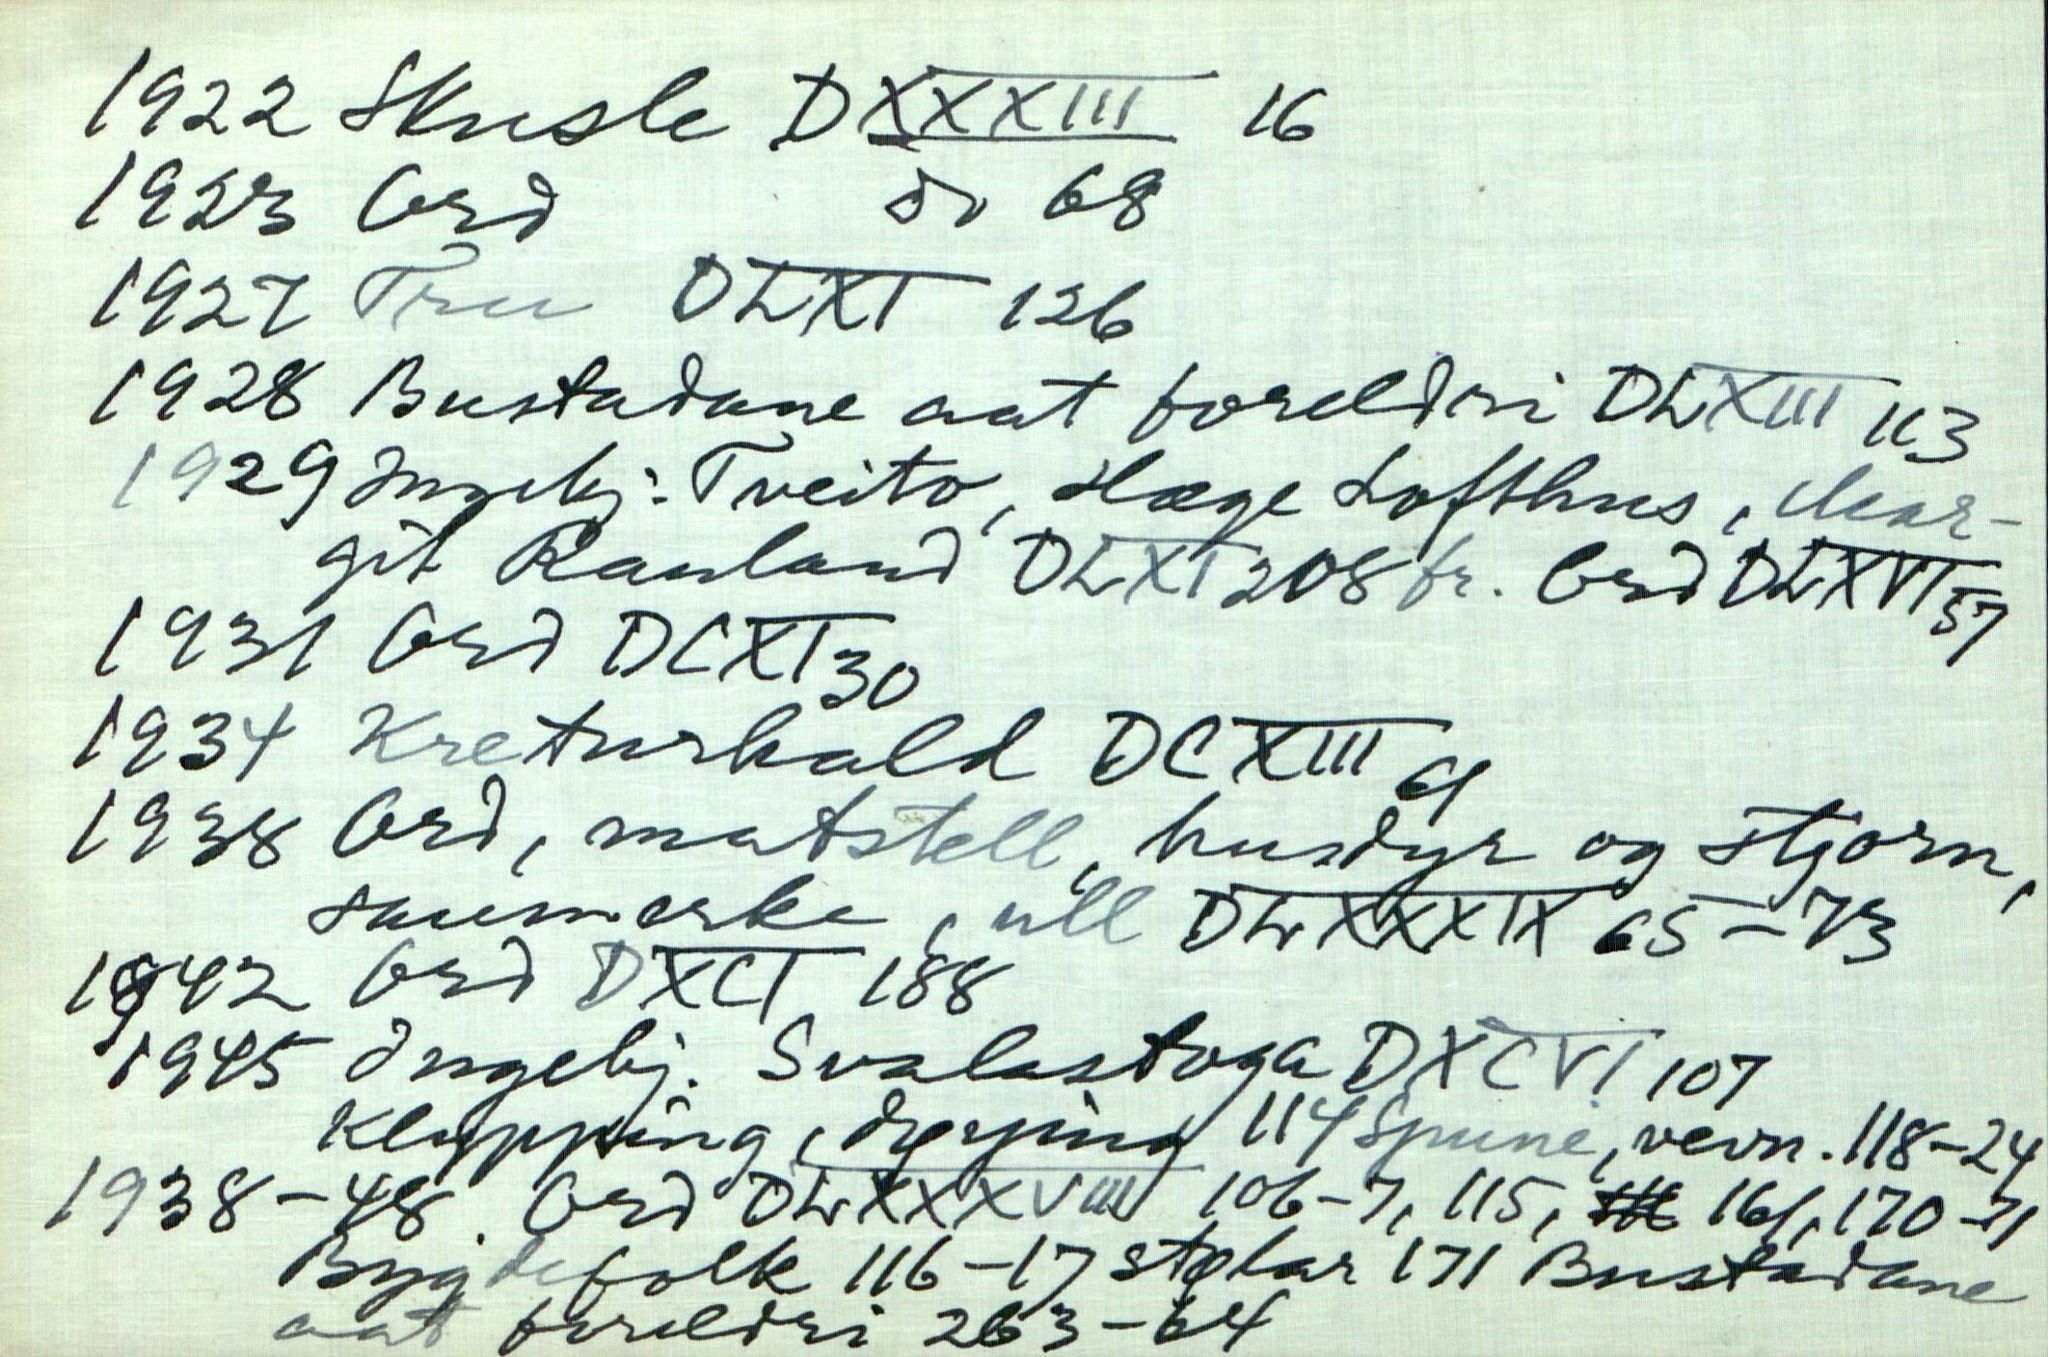 1922 Skusle DXXXIII 16
1923 Ord do 68
1927 Tru DLXI 126
1928 Bustadane aat foreldri DLXIII 113
1929 Ingebj. Tveito, Hæge Lofthus, Mar-
git Rauland DLXI 208 fr. Ord DLXVI 57
1931 Ord DCXI 30
1934 Kreturhald DCXIII 9
1938 Ord, matstell, husdyr og stjorn,
saumerke, ull DLXXXIX 65-73
1942 Ord DXCI 188
1945 Ingebj. Svalastoga DXCVI 107
Klypping, 114 Spune, vevn. 118-24
1938-48. Ord DLXXXVIII 106-7, 115, 161, 170-71
Bygdefolk 116-17 stolar 171 Bustadane
aat foreldri 263-64